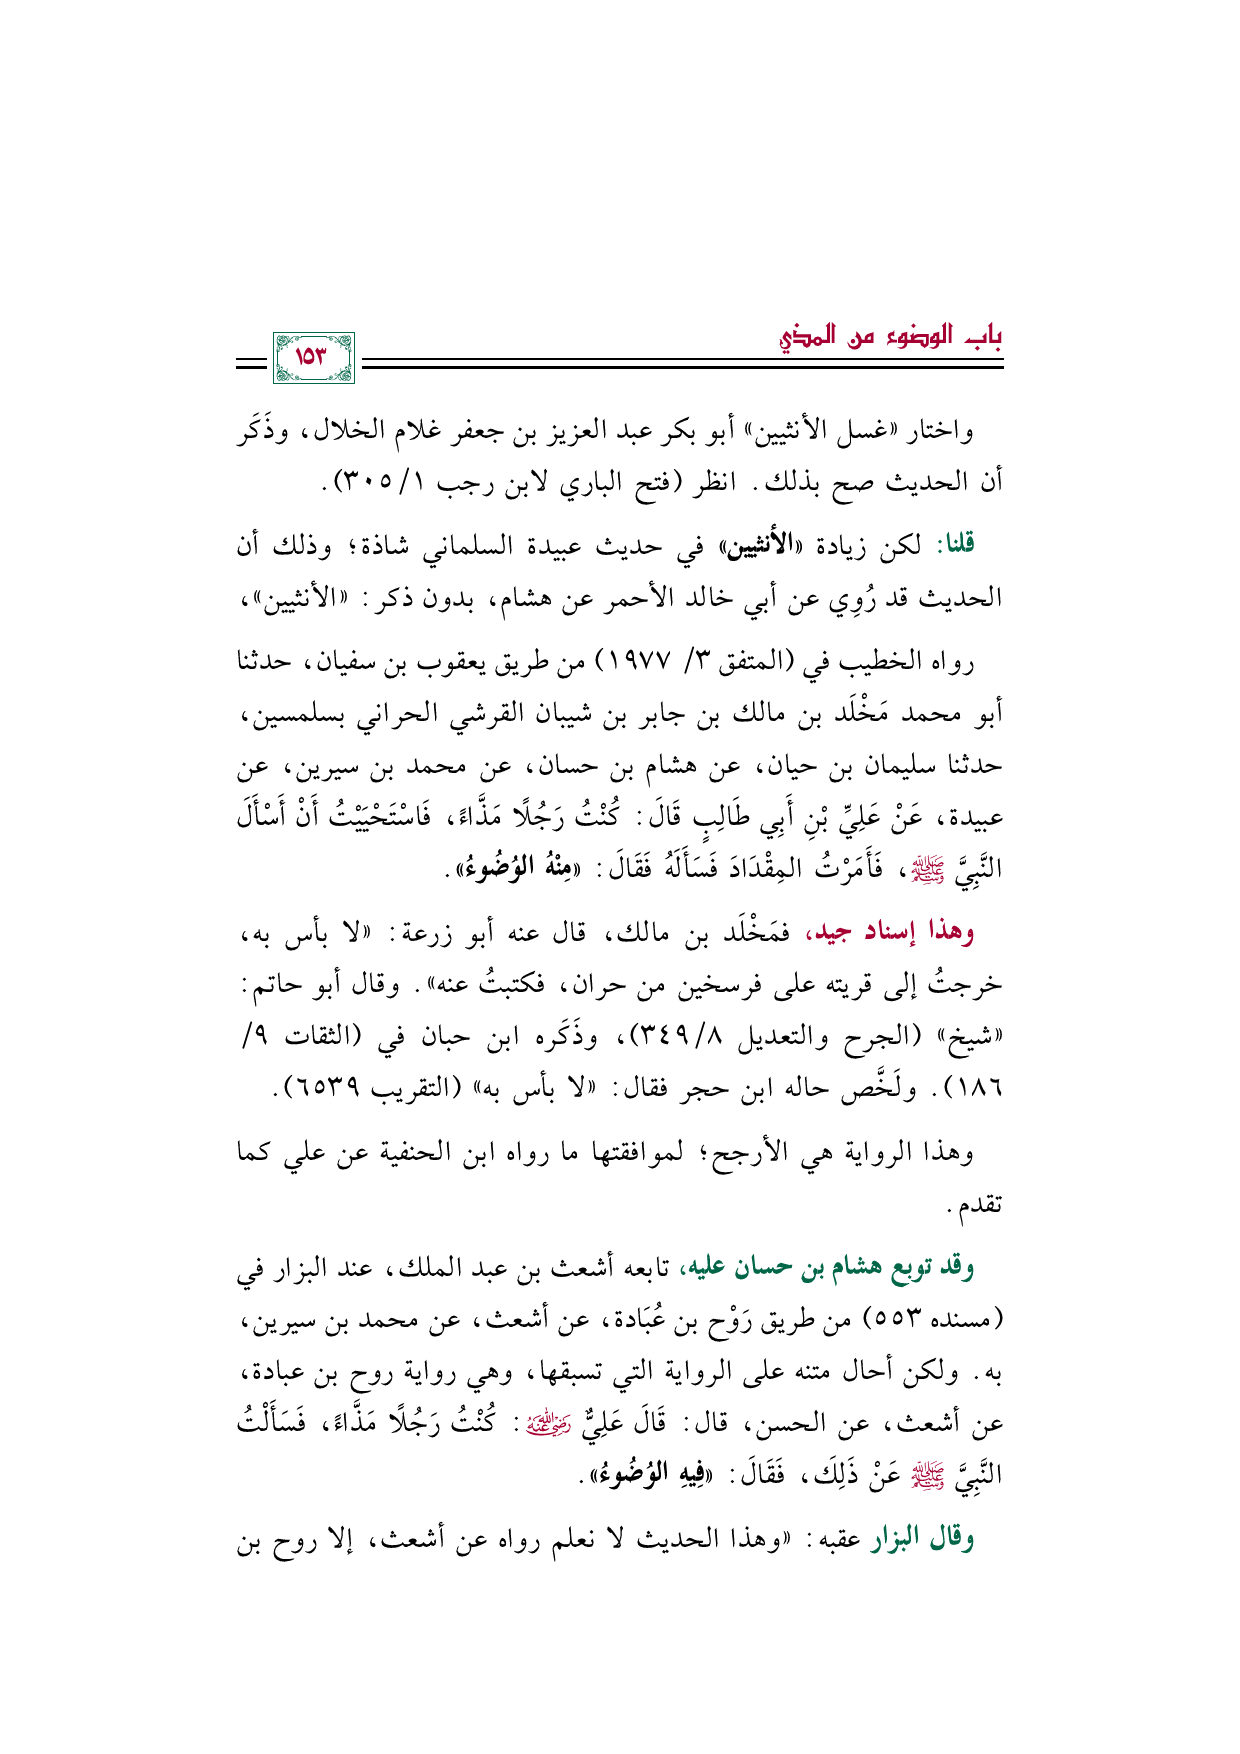 باب الوضوء من المذي
١٥٣
واختار «غسل الأنثيين» أبو بكر عبد العزيز بن جعفر غلام الخلال، وذَكَر
أن الحديث صح بذلك. انظر (فتح الباري لابن رجب ١/ ٣٠٥).
قلنا: لكن زيادة «الأنثيين» في حديث عبيدة السلماني شاذة؛ وذلك أن
الحديث قد رُوِي عن أبي خالد الأحمر عن هشام، بدون ذكر: «الأنثيين»،
رواه الخطيب في (المتفق ٣/ ١٩٧٧) من طريق يعقوب بن سفيان، حدثنا
أبو محمد مَخْلَد بن مالك بن جابر بن شيبان القرشي الحراني بسلمسين،
حدثنا سليمان بن حيان، عن هشام بن حسان، عن محمد بن سيرين، عن
عبيدة، عَنْ عَلِيِّ بْنِ أَبِي طَالِبٍ قَالَ: كُنْتُ رَجُلًا مَذَّاءً، فَاسْتَحْيَيْتُ أَنْ أَسْأَلَ
النَّبِيَّ ﷺ، فَأَمَرْتُ المِقْدَادَ فَسَأَلَهُ فَقَالَ: «مِنْهُ الوُضُوءُ».
وهذا إسناد جيد، فمَخْلَد بن مالك، قال عنه أبو زرعة: «لا بأس به،
خرجتُ إلى قريته على فرسخين من حران، فكتبتُ عنه». وقال أبو حاتم:
«شيخ» (الجرح والتعديل ٨/ ٣٤٩)، وذَكَره ابن حبان في (الثقات ٩/
١٨٦). ولَخَّص حاله ابن حجر فقال: «لا بأس به» (التقريب ٦٥٣٩).
وهذا الرواية هي الأرجح؛ لموافقتها ما رواه ابن الحنفية عن علي كما
تقدم.
وقد توبع هشام بن حسان عليه، تابعه أشعث بن عبد الملك، عند البزار في
(مسنده ٥٥٣) من طريق رَوْح بن عُبَادة، عن أشعث، عن محمد بن سيرين،
به. ولكن أحال متنه على الرواية التي تسبقها، وهي رواية روح بن عبادة،
عن أشعث، عن الحسن، قال: قَالَ عَلِيٌّ رضي الله عنه: كُنْتُ رَجُلًا مَذَّاءً، فَسَأَلْتُ
النَّبِيَّ ﷺ عَنْ ذَلِكَ، فَقَالَ: «فِيهِ الوُضُوءُ».
وقال البزار عقبه: «وهذا الحديث لا نعلم رواه عن أشعث، إلا روح بن